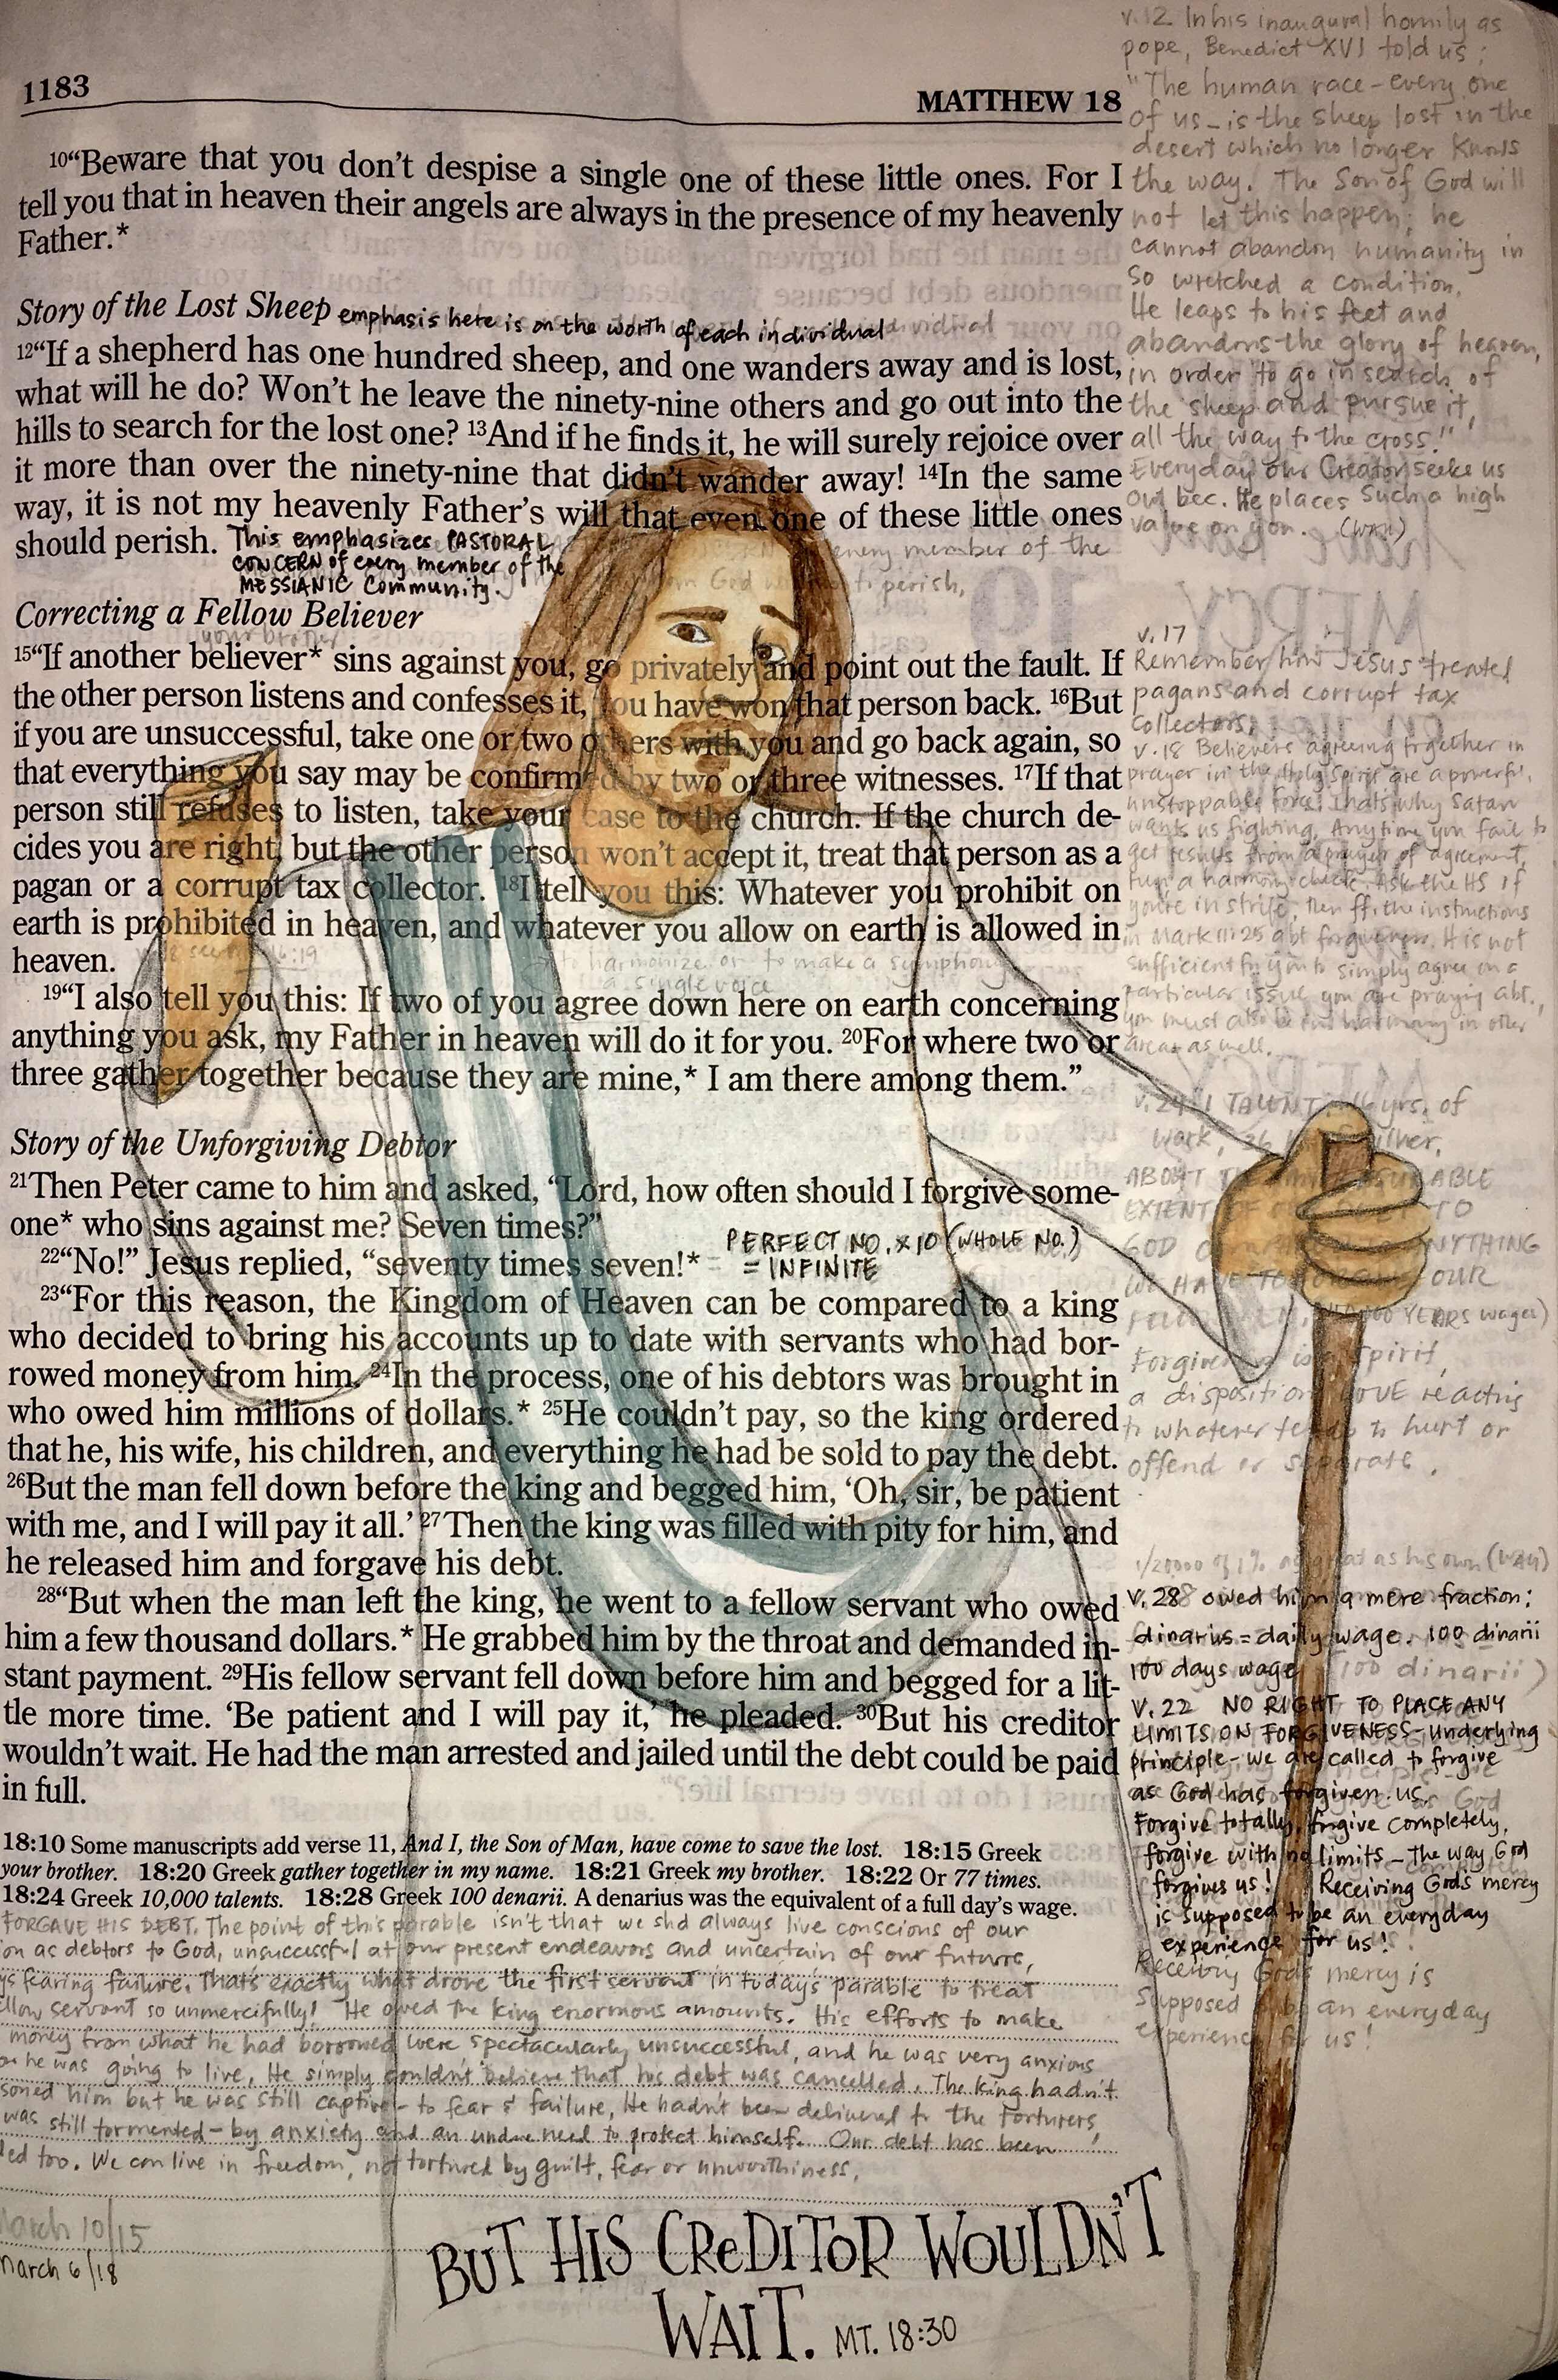 1183
MATTHEW 18
10“Beware that you don’t despise a single one of these little ones. For I
tell you that in heaven their angels are always in the presence of my heavenly
Father.*
Story of the Lost Sheep emphasis here is on the worth of each individual
12“If a shepherd has one hundred sheep, and one wanders away and is lost,
what will he do? Won’t he leave the ninety-nine others and go out into the
hills to search for the lost one? 13And if he finds it, he will surely rejoice over
it more than over the ninety-nine that didn’t wander away! 14In the same
way, it is not my heavenly Father’s will that even one of these little ones
should perish. This emphasizes PASTORAL
CONCERN of every member of the
MESSIANIC Community.
Correcting a Fellow Believer
your brother
15“If another believer* sins against you, go privately and point out the fault. If
the other person listens and confesses it, you have won that person back. 16But
if you are unsuccessful, take one or two others with you and go back again, so
that everything you say may be confirmed by two or three witnesses. 17If that
person still refuses to listen, take your case to the church. If the church de-
cides you are right, but the other person won’t accept it, treat that person as a
pagan or a corrupt tax collector. 18I tell you this: Whatever you prohibit on
earth is prohibited in heaven, and whatever you allow on earth is allowed in
heaven.
to harmonize or to make a symphony
a single voice
19“I also tell you this: If two of you agree down here on earth concerning
anything you ask, my Father in heaven will do it for you. 20For where two or
three gather together because they are mine,* I am there among them.”
Story of the Unforgiving Debtor
21Then Peter came to him and asked, “Lord, how often should I forgive some-
one* who sins against me? Seven times?”
22“No!” Jesus replied, “seventy times seven!* PERFECT NO. x 10 (WHOLE NO.)
= INFINITE
23“For this reason, the Kingdom of Heaven can be compared to a king
who decided to bring his accounts up to date with servants who had bor-
rowed money from him. 24In the process, one of his debtors was brought in
who owed him millions of dollars.* 25He couldn’t pay, so the king ordered
that he, his wife, his children, and everything he had be sold to pay the debt.
26But the man fell down before the king and begged him, ‘Oh, sir, be patient
with me, and I will pay it all.’ 27Then the king was filled with pity for him, and
he released him and forgave his debt.
28“But when the man left the king, he went to a fellow servant who owed
him a few thousand dollars.* He grabbed him by the throat and demanded in-
stant payment. 29His fellow servant fell down before him and begged for a lit-
tle more time. ‘Be patient and I will pay it,’ he pleaded. 30But his creditor
wouldn’t wait. He had the man arrested and jailed until the debt could be paid
in full.
18:10 Some manuscripts add verse 11, And I, the Son of Man, have come to save the lost. 18:15 Greek
your brother. 18:20 Greek gather together in my name. 18:21 Greek my brother. 18:22 Or 77 times.
18:24 Greek 10,000 talents. 18:28 Greek 100 denarii. A denarius was the equivalent of a full day’s wage.
FORGAVE HIS DEBT. The point of this parable isn't that we shd always live conscious of our
as debtors to God, unsuccessful at our present endeavors and uncertain of our future,
fearing failure. That's exactly what drove the first servant in today's parable to treat
servant so unmercifully! He owed the king enormous amounts. His efforts to make
money from what he had borrowed were spectacularly unsuccessful, and he was very anxious
he was going to live. He simply couldn't believe that his debt was cancelled. The king hadn't
him but he was still captive - to fear & failure. He hadn't been delivered to the torturers,
was still tormented - by anxiety and an undue need to protect himself. Our debt has been
too. We can live in freedom, not tortured by guilt, fear or unworthiness.
March 10/15
March 6/18
BUT HIS CREDITOR WOULDN'T
WAIT. MT. 18:30
v.12 In his inaugural homily as
pope, Benedict XVI told us:
"The human race - every one
of us - is the sheep lost in the
desert which no longer knows
the way. The Son of God will
not let this happen; he
cannot abandon humanity in
so wretched a condition.
He leaps to his feet and
abandons the glory of heaven,
in order to go in search of
the sheep and pursue it,
all the way to the cross!"
Everyday our Creator seeks us
out bec. He places such a high
value on you. (WAH)
v.17
Remember how Jesus treated
pagans and corrupt tax
collectors.
v.18 Believers agreeing together in
prayer in the Holy Spirit are a powerful,
unstoppable force. That's why Satan
wants us fighting. Anytime you fail to
get results from a prayer of agreement,
run a harmony check. Ask the HS if
you're in strife, then the instructions
in Mark 11:25 abt forgiveness. It is not
sufficient for you to simply agree on a
particular issue you are praying abt.,
you must also be in harmony in other
areas as well.
v.24 1 TALENT yrs. of
work,
EXTENT OF TO
GOD ANYTHING
WE HAVE TO OUR
YEARS wages)
Forgiveness is spirit,
a disposition LOVE reacting
to whatever tends to hurt or
offend or separate.
v.28 owed him a mere fraction:
dinarius = daily wage. 100 dinarii
100 days wage
v.22 NO RIGHT TO PLACE ANY
LIMITS ON FORGIVENESS - underlying
principle - we are called to forgive
as God has forgiven us.
Forgive totally, forgive completely,
forgive with no limits - the way God
forgives us! Receiving God's mercy
is supposed to be an everyday
experience for us!
Receiving God's mercy is
supposed to be an everyday
experience for us!